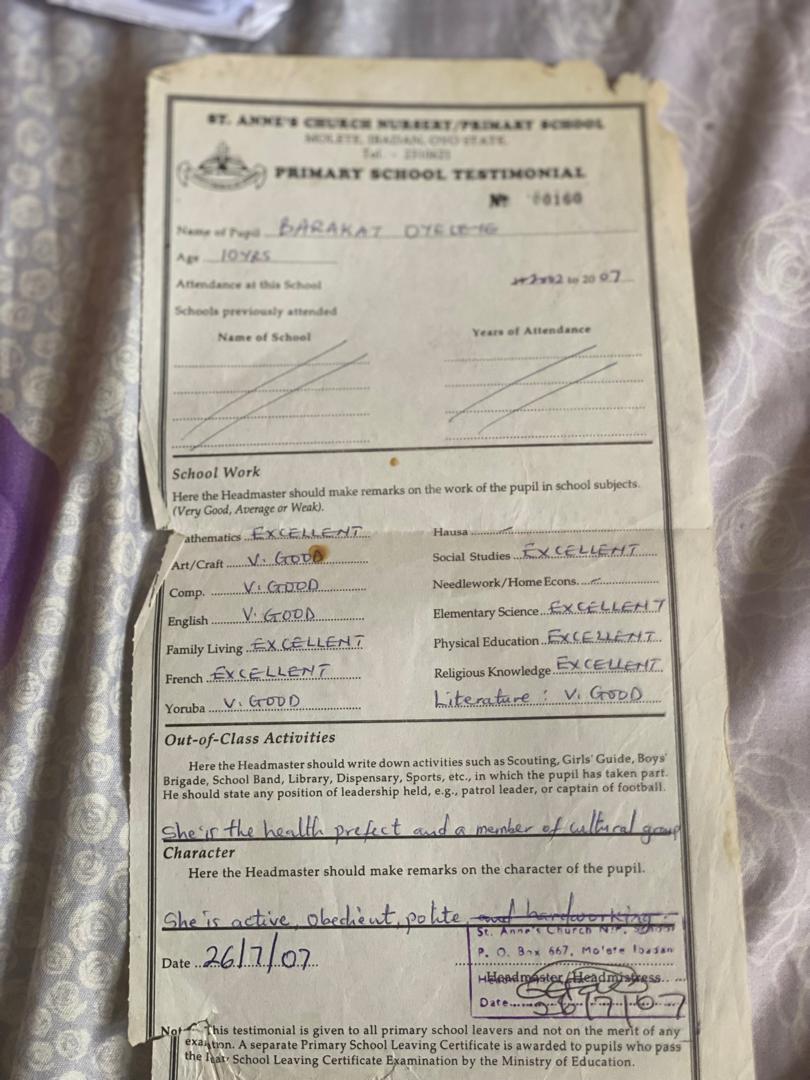 ST. ANNE'S CHURCH NURSERY/PRIMARY SCHOOL
MOLETE, IBADAN, OYO STATE.
Tel. -
PRIMARY SCHOOL TESTIMONIAL
No 00160
Name of Pupil BARAKAT
Age 10YRS
Attendance at this School 2002 to 2007
Schools previously attended
Name of School Years of Attendance
School Work
Here the Headmaster should make remarks on the work of the pupil in school subjects.
(Very Good, Average or Weak).
athematics EXCELLENT Hausa
Art/Craft V. GOOD Social Studies EXCELLENT
Comp. V. GOOD Needlework/Home Econs.
English V. GOOD Elementary Science EXCELLENT
Family Living EXCELLENT Physical Education EXCELLENT
French EXCELLENT Religious Knowledge EXCELLENT
Yoruba V. GOOD Literature : V. GOOD
Out-of-Class Activities
Here the Headmaster should write down activities such as Scouting, Girls' Guide, Boys'
Brigade, School Band, Library, Dispensary, Sports, etc., in which the pupil has taken part.
He should state any position of leadership held, e.g., patrol leader, or captain of football.
She is the health prefect and a member of cultural group
Character
Here the Headmaster should make remarks on the character of the pupil.
She is active, obedient, polite and hardworking.
St. Anne's Church N/P. School
P. O. Box 667, Molete Ibadan
Date 26/7/07
Headmaster/Headmistress
Date 26/7/07
Not This testimonial is given to all primary school leavers and not on the merit of any
exa tion. A separate Primary School Leaving Certificate is awarded to pupils who pass
the School Leaving Certificate Examination by the Ministry of Education.